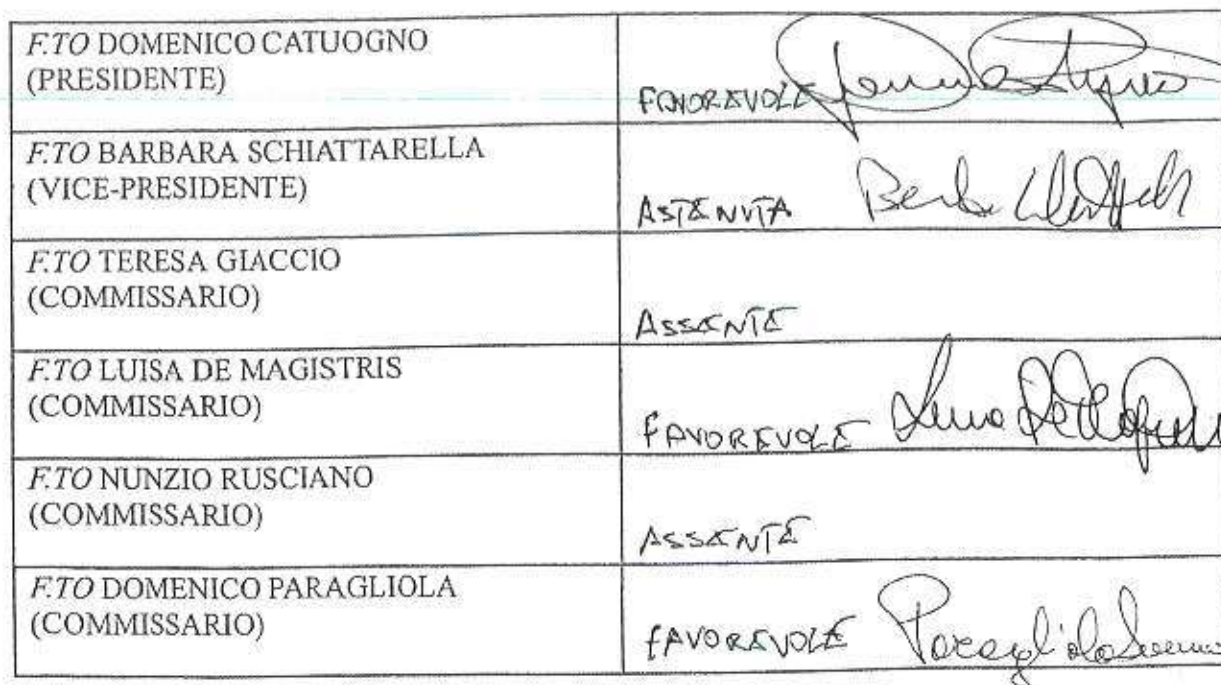 F.TO DOMENICO CATUOGNO
(PRESIDENTE)
FAVOREVOLE
F.TO BARBARA SCHIATTARELLA
(VICE-PRESIDENTE)
ASTENUTA
F.TO TERESA GIACCIO
(COMMISSARIO)
ASSENTE
F.TO LUISA DE MAGISTRIS
(COMMISSARIO)
FAVOREVOLE
F.TO NUNZIO RUSCIANO
(COMMISSARIO)
ASSENTE
F.TO DOMENICO PARAGLIOLA
(COMMISSARIO)
FAVOREVOLE Paragliola